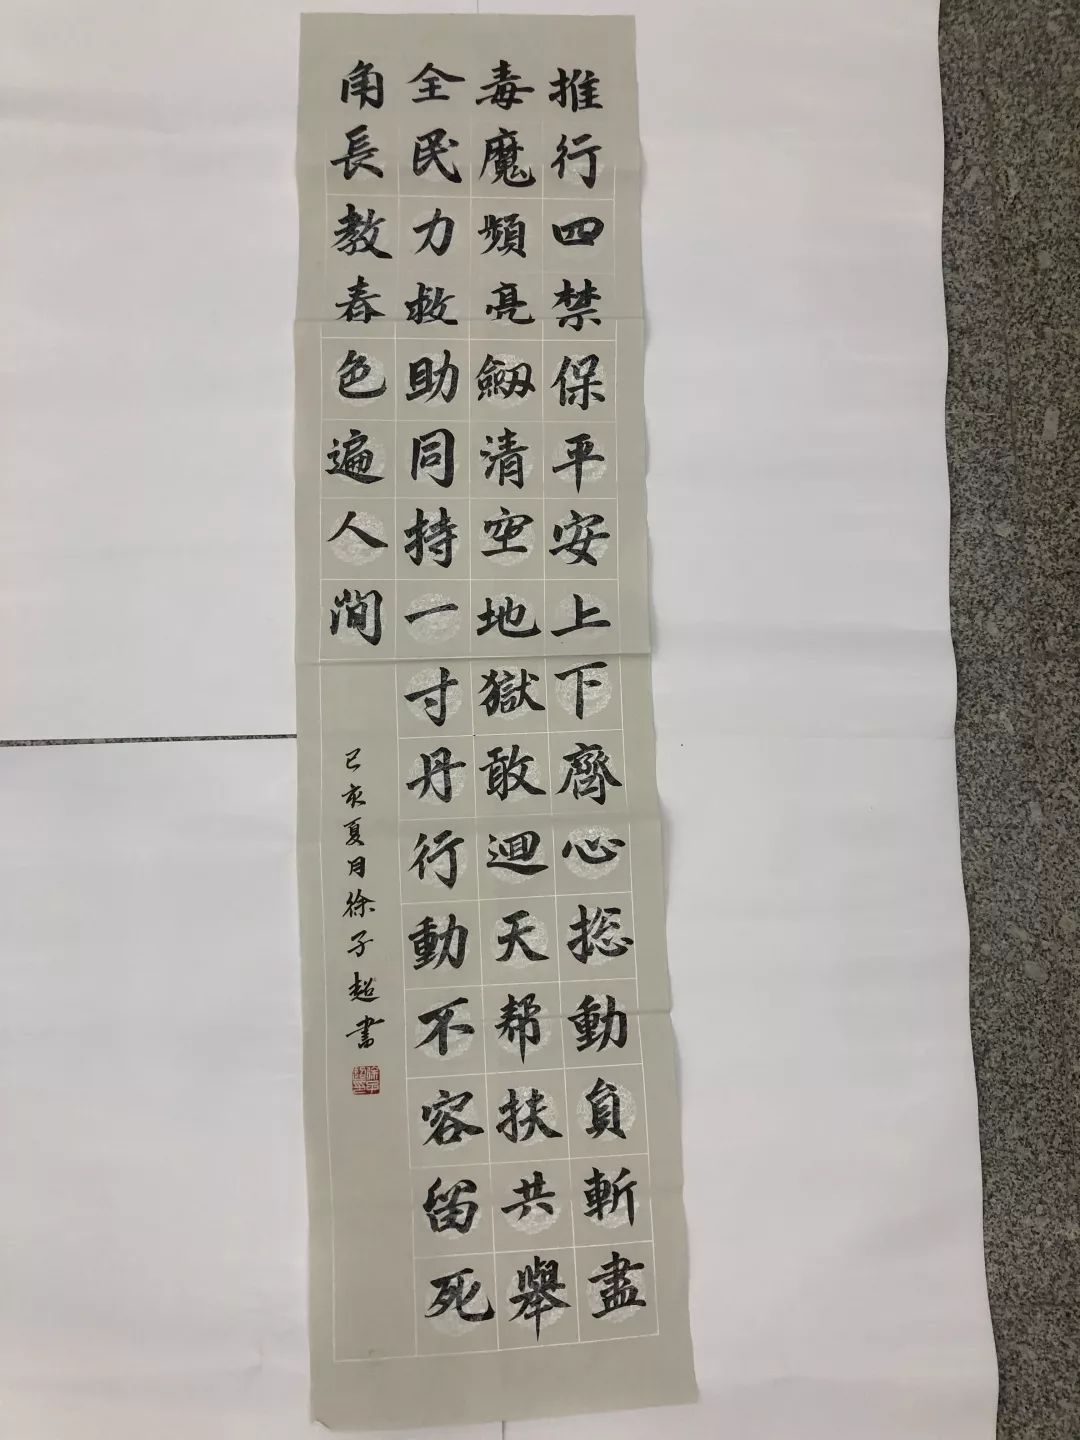 推行四禁保平安上下齊心捴動員斬盡
毒魔頻亮劔清空地獄敢迴天帮扶共舉
全民力救助同持一寸丹行動不容留死
角長教春色遍人間
己亥夏月徐子超書